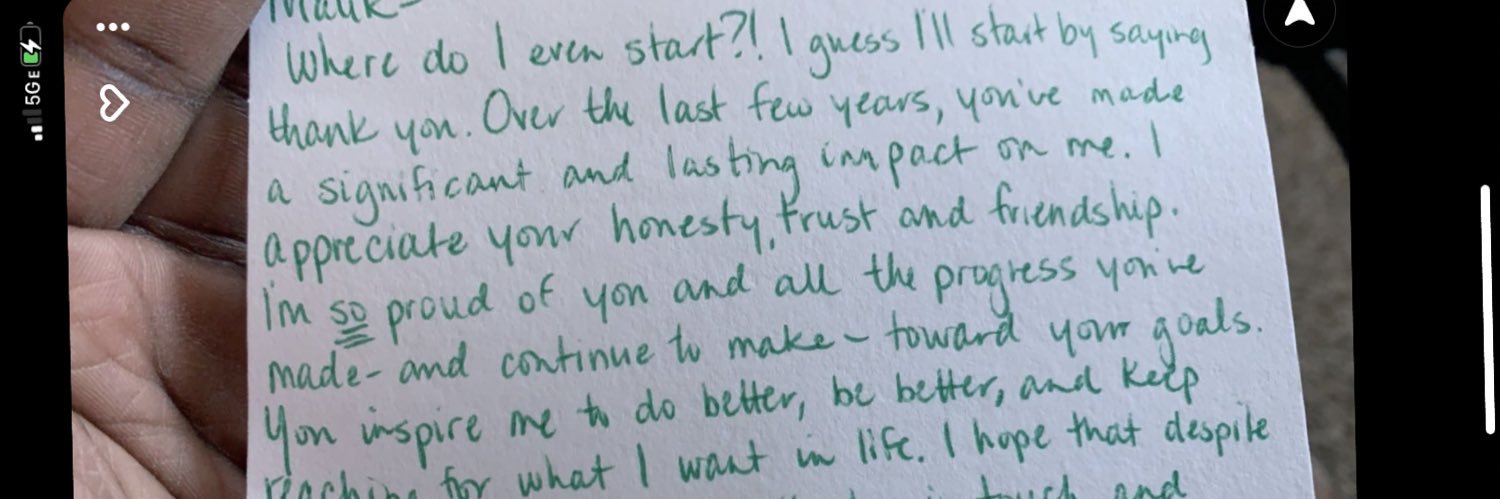 5G E
Where do I even start?! I guess I'll start by saying
thank you. Over the last few years, you've made
a significant and lasting impact on me. I
appreciate your honesty, trust and friendship.
I'm so proud of you and all the progress you've
made - and continue to make - toward your goals.
You inspire me to do better, be better, and keep
reaching for what I want in life. I hope that despite
in touch and